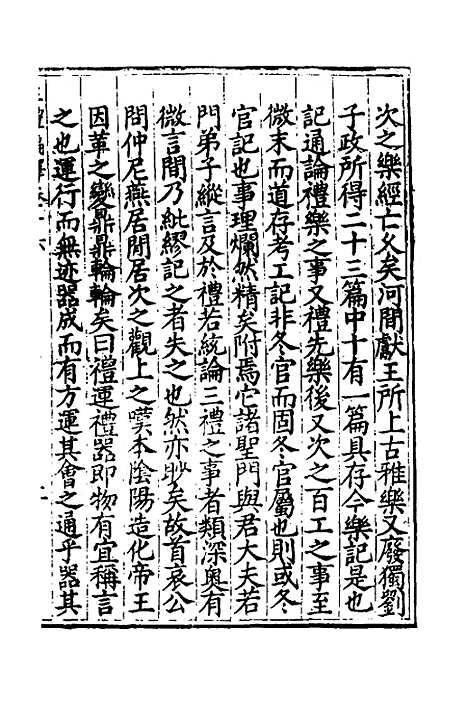 次之樂經亡乆矣河間獻王所上古雅樂又廢獨劉
子政所得二十三篇中十有一篇具存今樂記是也
記通論禮樂之事又禮先樂後又次之百工之事至
微末而道存考工記非冬官而固冬官屬也則或冬
官記也事理爛然精矣附焉它諸聖門與君大夫若
門弟子縱言及於禮若統論三禮之事者類深奥有
微言間乃紕繆記之者失之也然亦眇矣故首哀公
問仲尼燕居閒居次之觀上之嘆本陰陽造化帝王
因革之變鼎鼎輪輪矣曰禮運禮器即物有宜稱言
之也運行而無迹器成而有方運其會之通乎器其